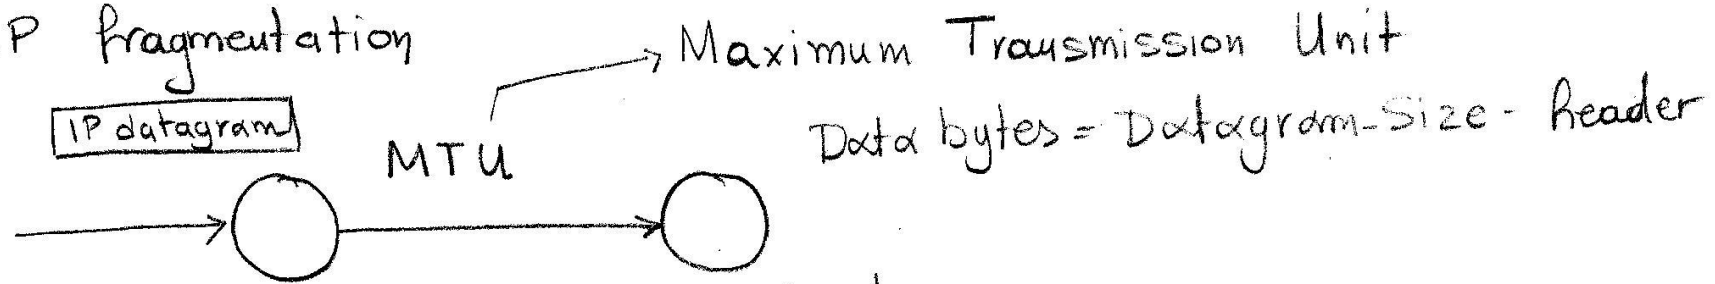 P fragmentation
Maximum Transmission Unit
IP datagram
MTU
Data bytes = Datagram-Size - header